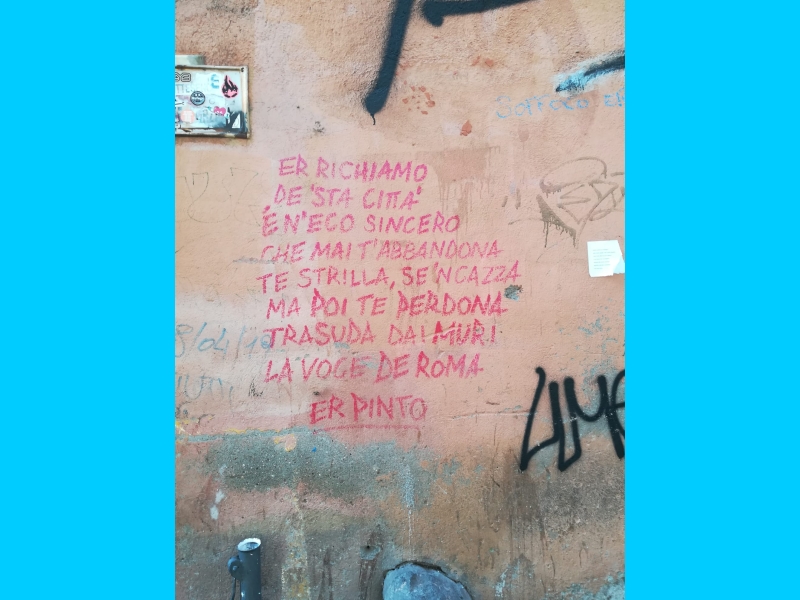 ER RICHIAMO
DE 'STA CITTA'
È N'ECO SINCERO
CHE MAI T'ABBANDONA
TE STRILLA, SE 'NCAZZA
MA POI TE PERDONA
TRASUDA DAI MURI
LA VOCE DE ROMA
ER PINTO